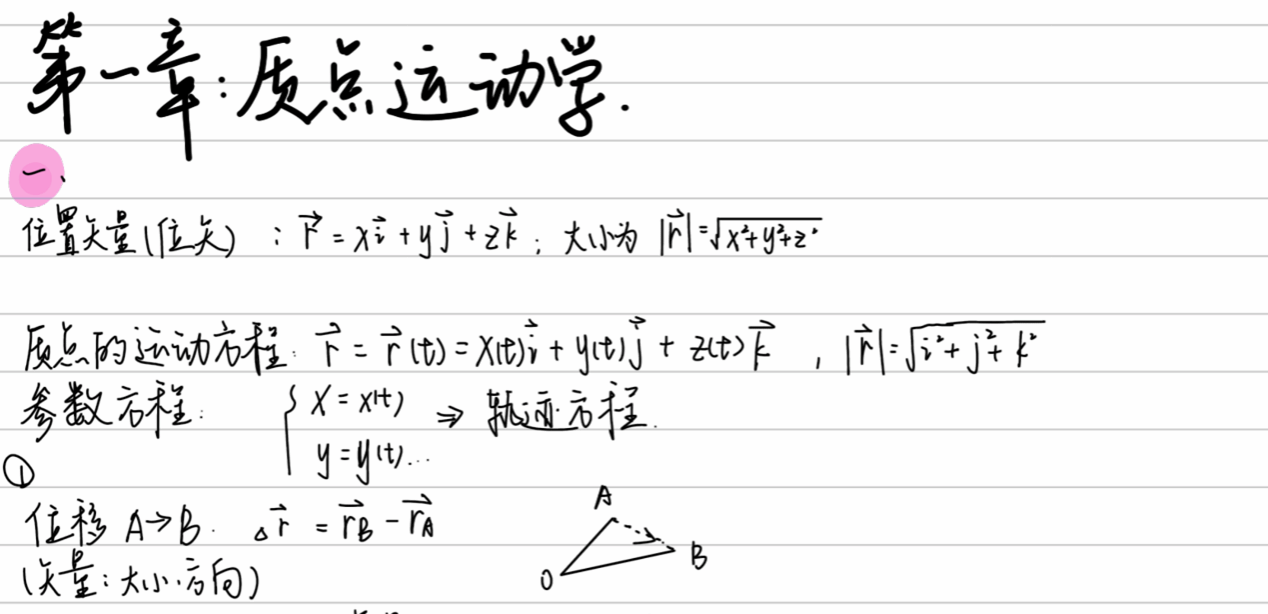 第一章:质点运动学.
一、
位置矢量(位矢) : r⃗ = xi⃗ + yj⃗ + zk⃗ ; 大小为 |r⃗|=√(x²+y²+z²)
质点的运动方程: r⃗ = r⃗(t) = x(t)i⃗ + y(t)j⃗ + z(t)k⃗ , |r⃗|=√(i²+j²+k²)
参数方程: { x = x(t) ⇒ 轨迹方程.
y = y(t)...
①
位移 A→B. △r⃗ = r⃗_B - r⃗_A
(矢量:大小.方向)
A
B
O